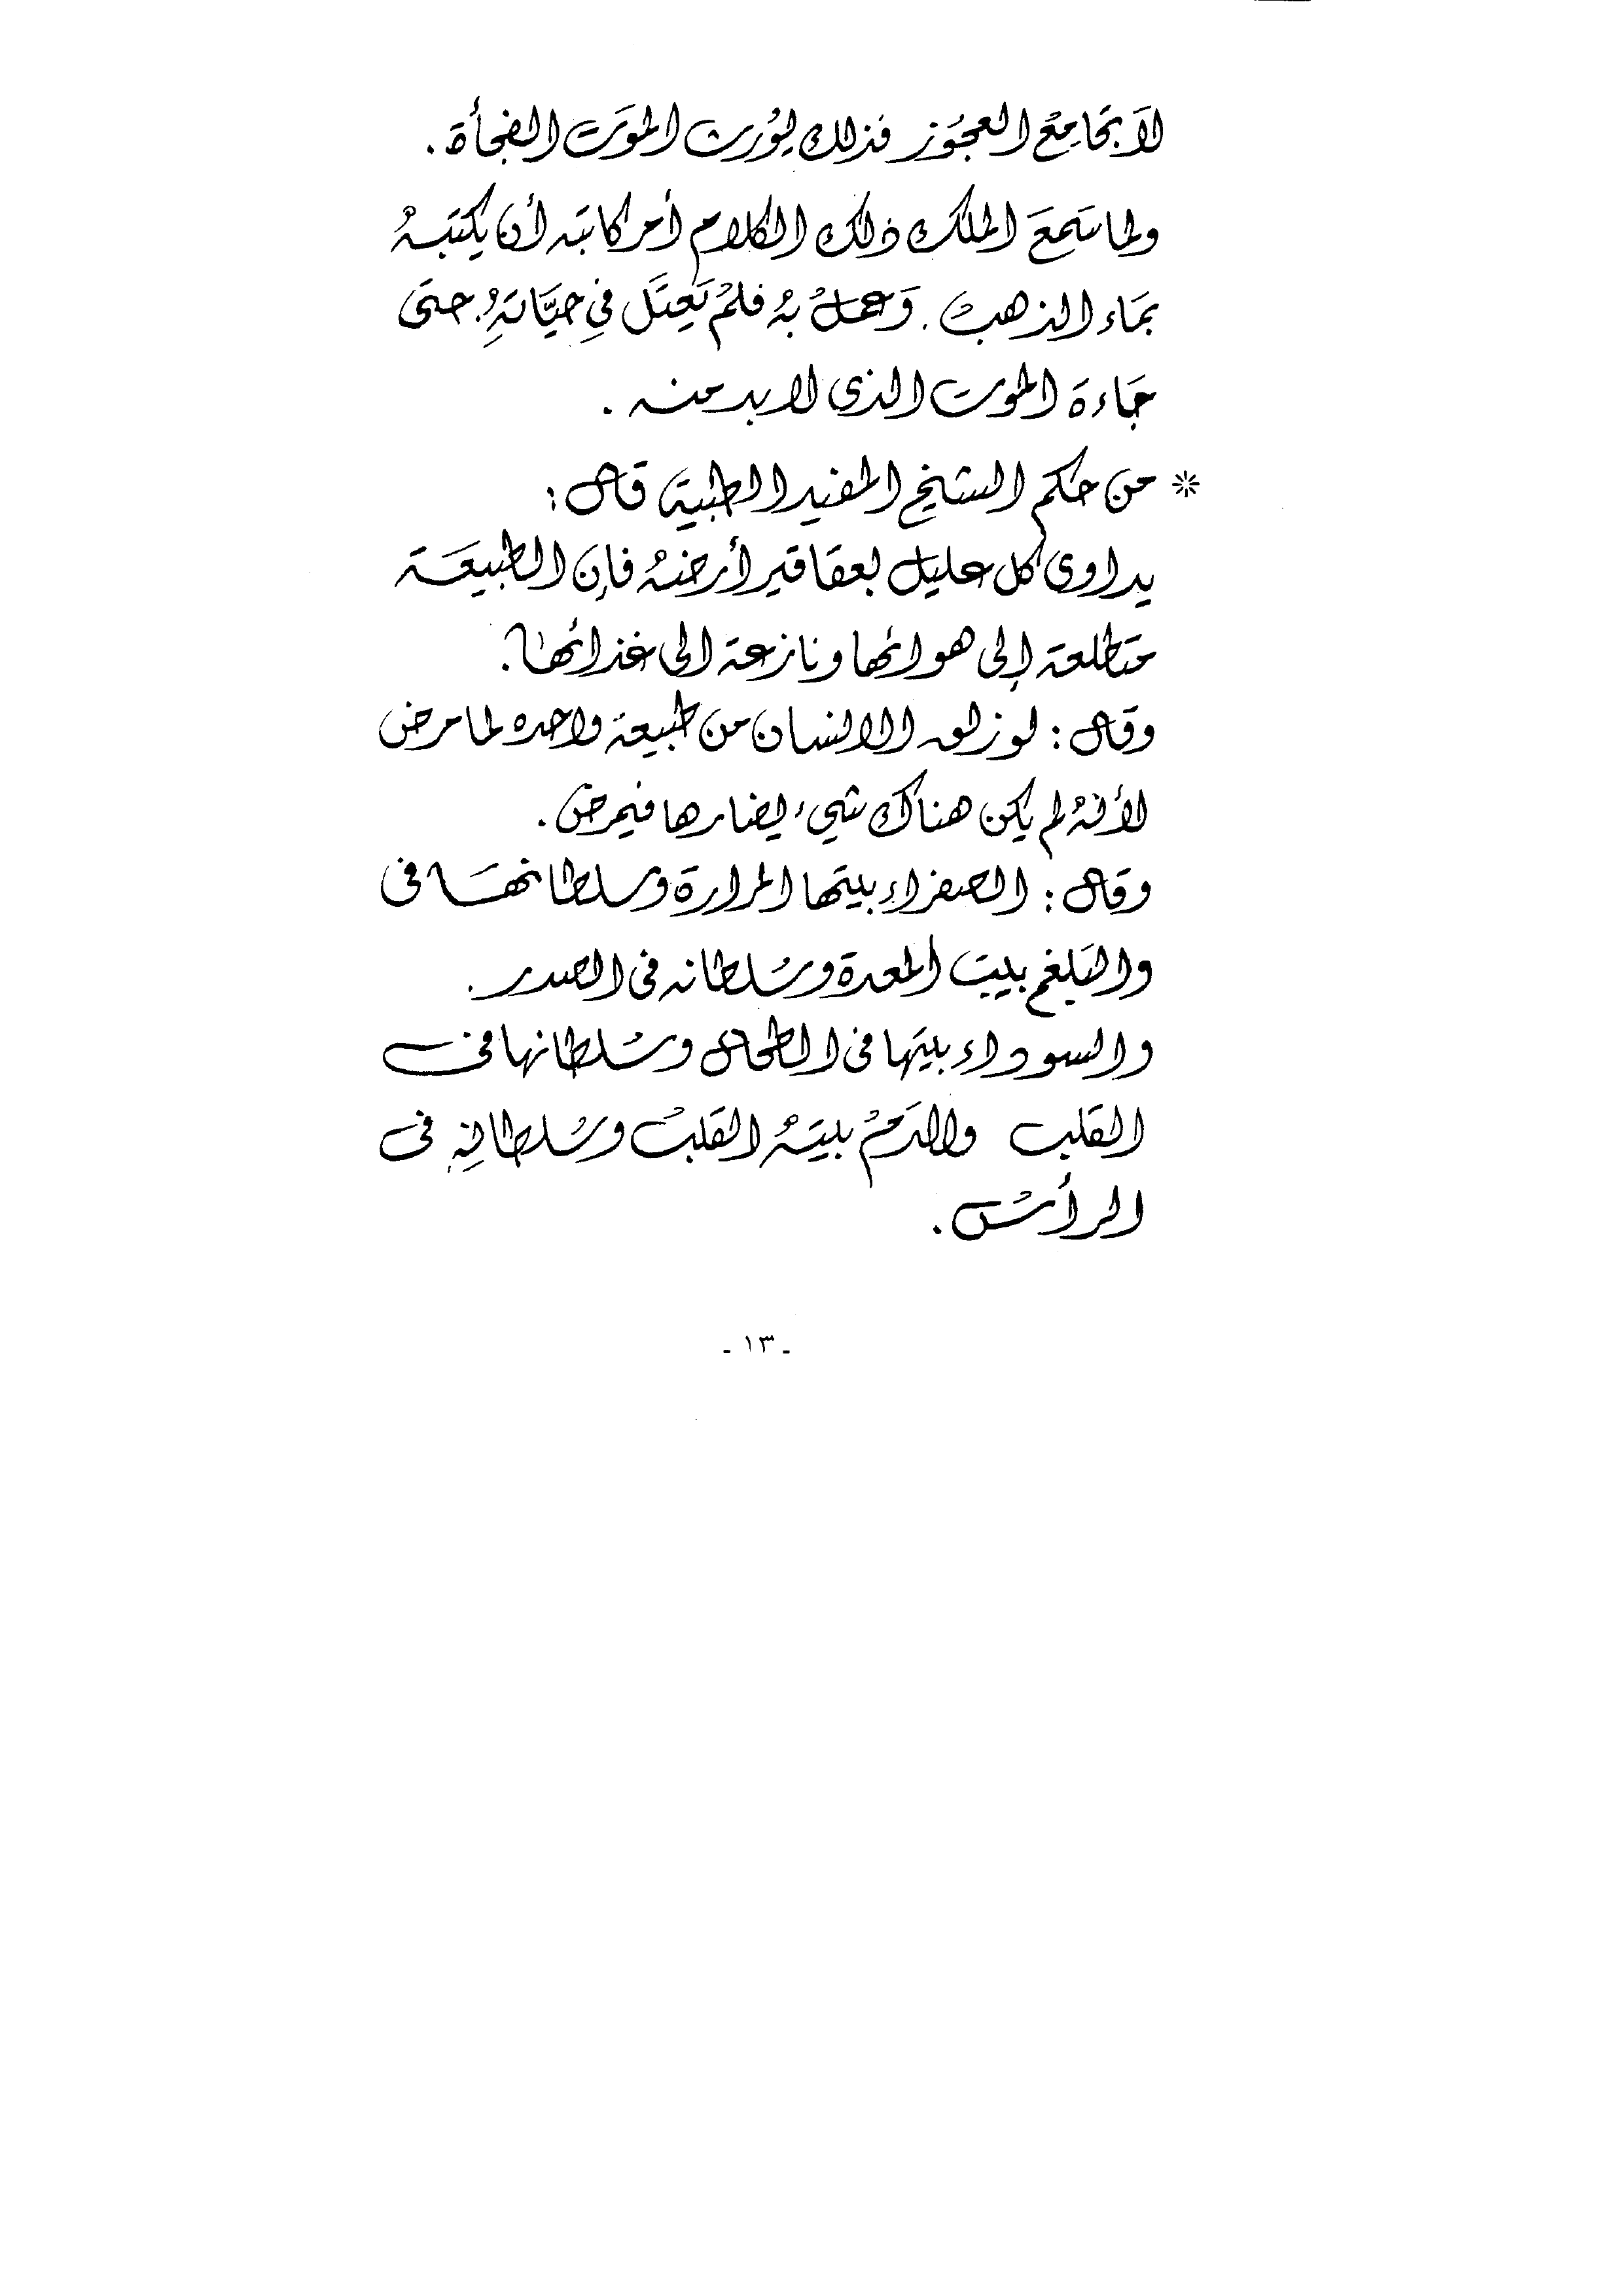 لاَ تجَامِعْ العجُوَز فذلك يوُرث الموَت الفجأة .
ولما سَمعَ الملك ذلك الكلام أمر كاتبه أن يكتبهُ
بمَاء الذهبْ . وَعملْ بهُ فلمْ يَعِتَل فيِ حيَّاتهِ حتى
جَاءة الموت الذى لا بد منه .
* من حكم الشيخ المفيد الطبية قال :
يداوى كل عليل بعقاقير أرضهُ فإن الطبيعَة
متطلعة إلى هوائها ونازعة الى غذائها .
وقال : لو زلق الانسان من طبيعة واحده لما مرض
لأنهُ لم يكن هناك شيء يضارها فيمرض .
وقال : الصفراء بيتها المرارة وسلطانهَا فى
والبَلغم بيت المعدة وسُلطانه فى الصدر .
والسوداء بيتها فى الطحال وسُلطانها فى
القلب والدَمْ بيتهُ القلبْ وسُلطانِه فى
الرأسْ .
- ١٣ -